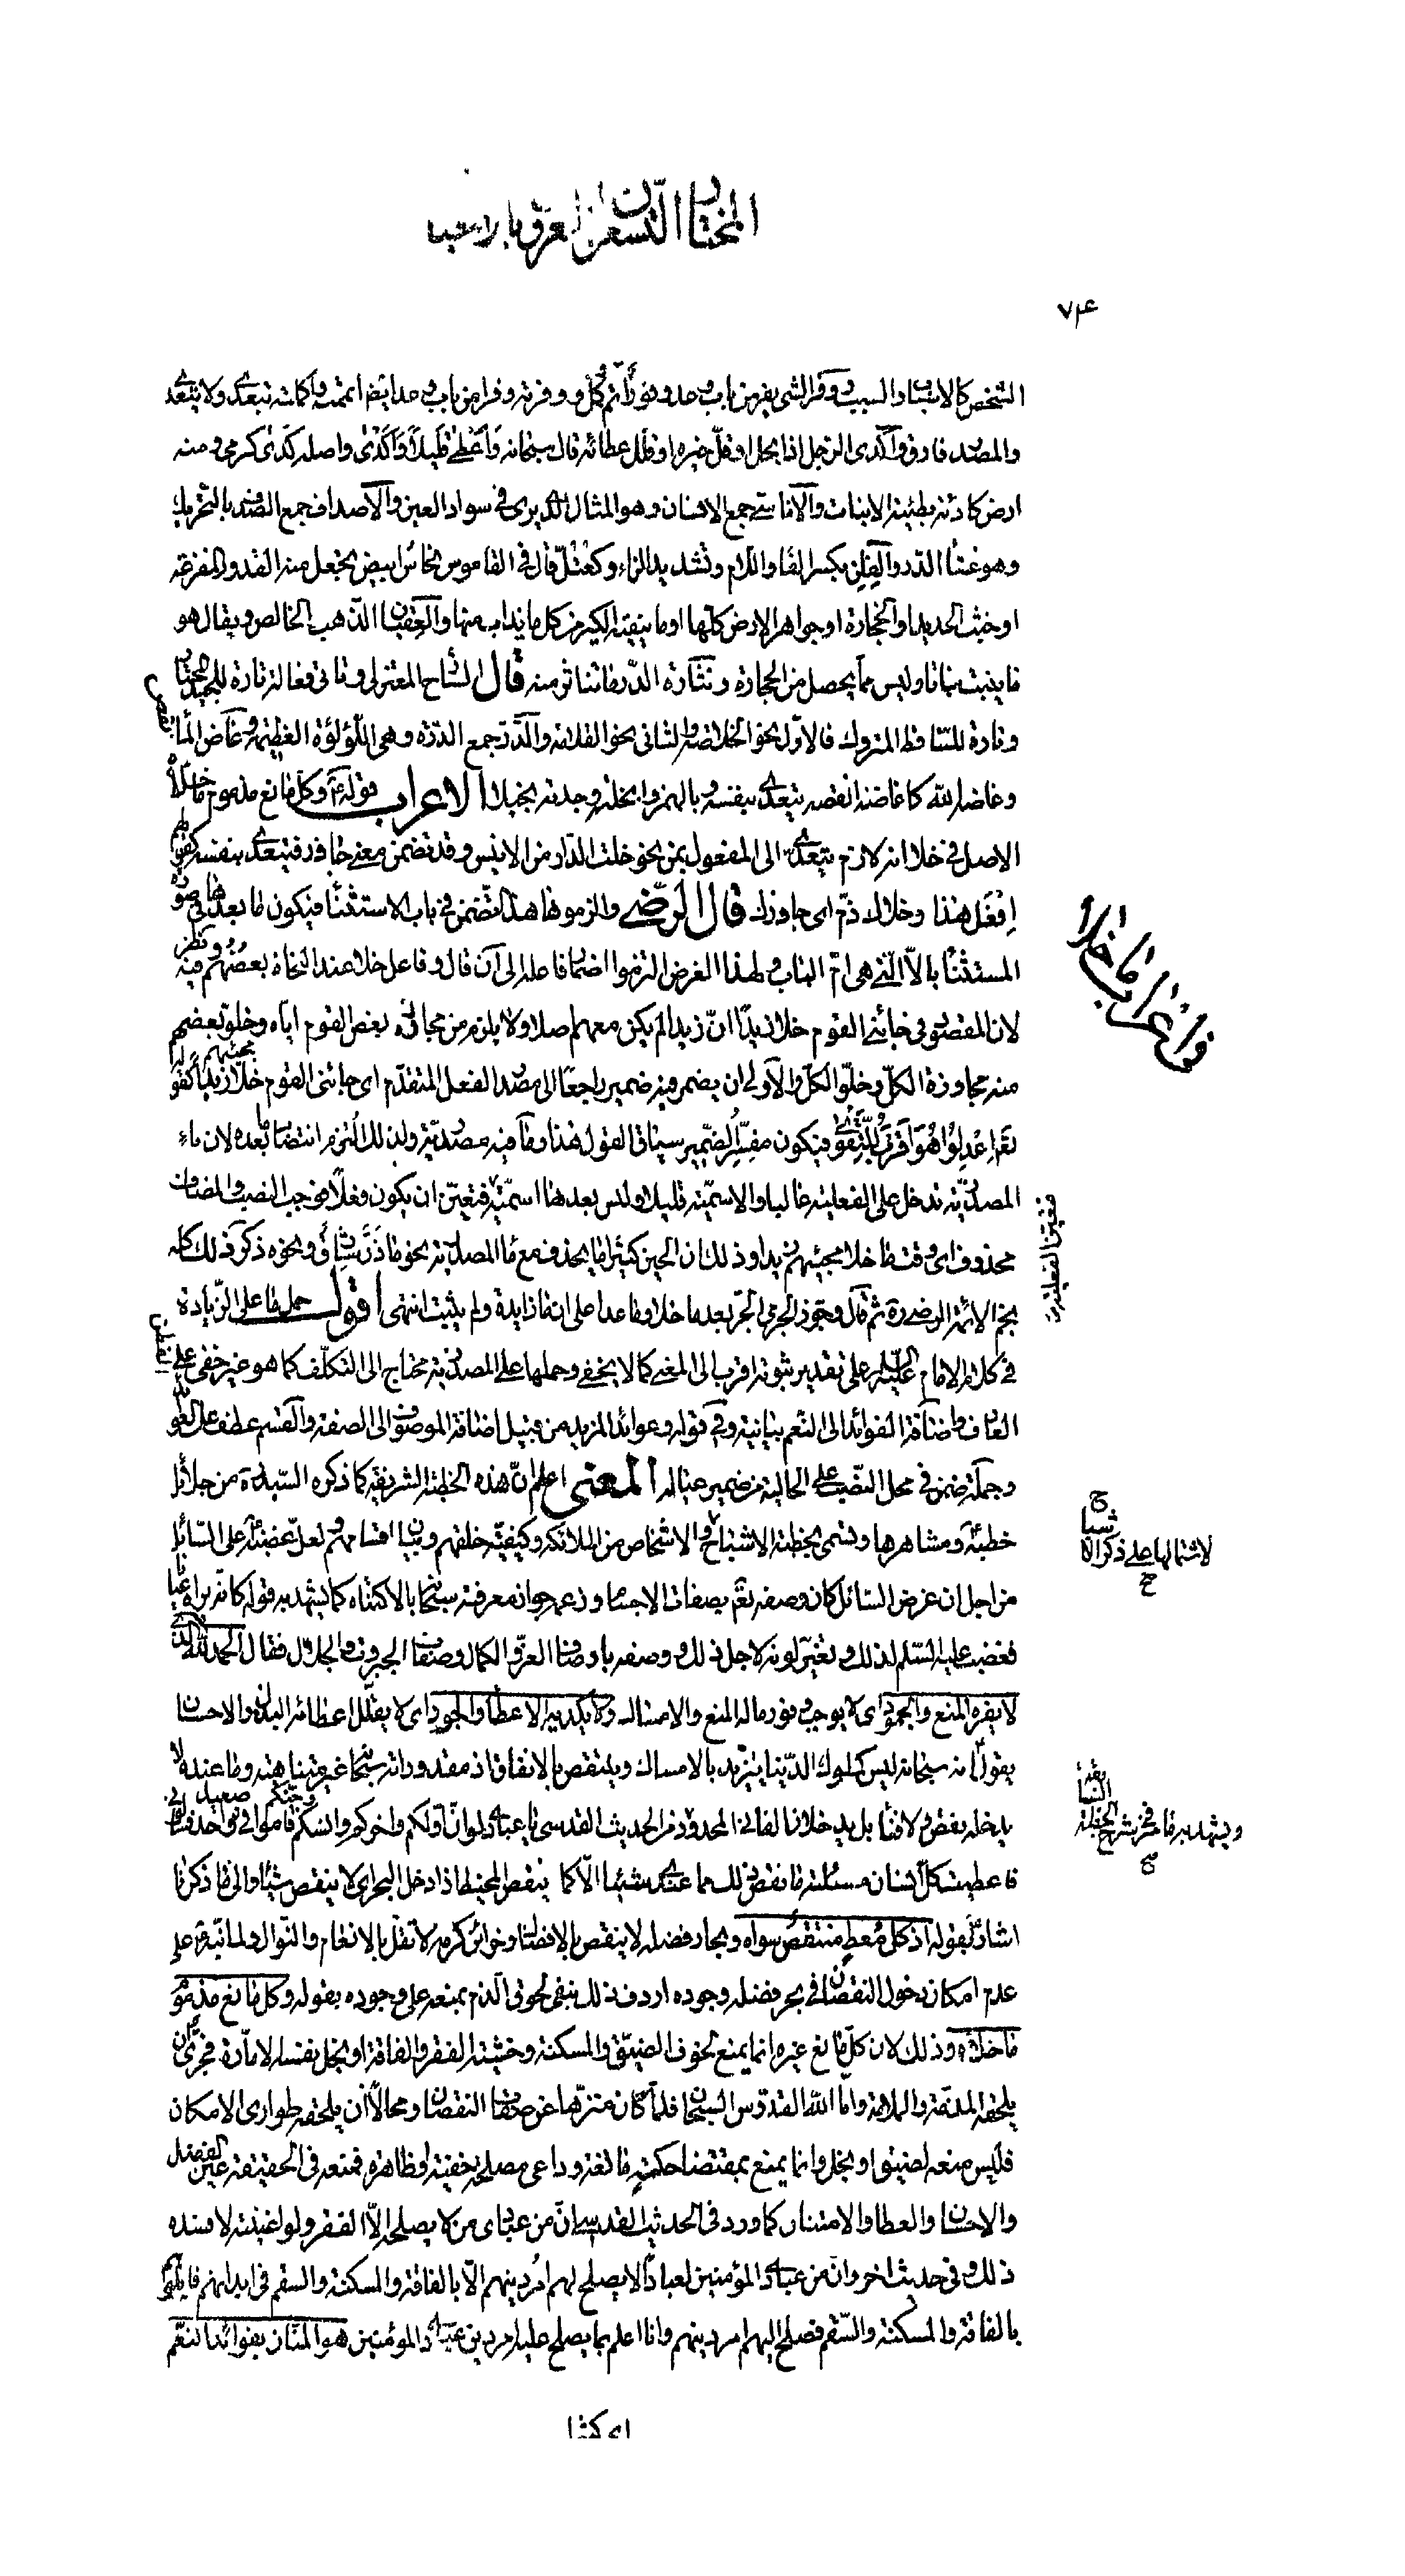 المختار التسعون المعروف با
٧٤
الشخص كالاسباب والسبب ووفر الشئ يفر من باب وعد وفورا تمّ وكمل ووفرته وفرا من باب وعد ايضا اتممته واكملته يتعدى ولا يتعدى
والمصدر فارق واكدى الرجل اذا بخل او قلّ خيره او قلل عطائه قال سبحانه وَاَعْطى قَليلاً وَاَكْدى واصله كدى كرمى ومنه
ارض كادئة بطيئة الانبات والاناسىّ جمع الانسان وهو المثال الذى يرى فى سواد العين والاصداف جمع الصدف بالتحريك
وهو غشاء الدر والفِلِزّ بكسر الفاء واللام وتشديد الزاء وكعُتُلّ قال فى القاموس نحاس ابيض يجعل منه القدور المفرغة
او خبث الحديد او الحجارة او جواهر الارض كلها او ما ينفيه الكير من كل ما يذاب منها والعِقيان الذهب الخالص ويقال هو
ما ينبت نباتا وليس مما يحصل من الحجارة ونثارة الدر ما تناثر منه قال الشارح المعتزلى وتأتى فعالة تارة للجيد المختار
وتارة للساقط المتروك فالاوّل نحو الخلاصة والثانى نحو القلامة والدّرر جمع الدرّة وهى اللؤلؤة العظيمة وغاض الماء نقص
وغاضه اللّه كاغاضه انقصه يتعدى بنفسه وبالهمز وابخلته وجدته بخيلا الاعراب قوله وكل مانع مذموم ما خلاه
الاصل فى خلا انه لازم يتعدى الى المفعول بمن نحو خلت الدار من الانيس وقد تضمن معنى جاوز فيتعدى بنفسه كقولهم
اِفْعَل هذا وخلاك ذمّ اى جاوزك قال الرّضى والزموها هذا التضمن فى باب الاستثناء فيكون ما بعدها فى صورة
المستثنى بالاّ الّتى هى امّ الباب ولهذا الغرض التزموا اضمار فاعله الى ان قال وفاعل خلا عند النحاة بعضهم وفيه نظر
لان المقصود فى جائنى القوم خلا زيدا انّ زيدا لم يكن معهم اصلا ولا يلزم من مجاوزة بعض القوم اياه وخلو بعضهم
منه مجاوزة الكلّ وخلوّ الكلّ والاولى ان يضمر فيه ضمير راجعا الى مصدر الفعل المتقدّم اى جائنى القوم خلا مجيئهم زيدا كقوله
تعالى اِعْدِلُوا هُوَ اَقْرَبُ لِلتَّقْوى فيكون مفسّر الضمير سياق القول هذا وما فيه مصدرية ولذلك التزم انتصاب ما بعده لان ماء
المصدرية تدخل على الفعلية غالبا والاسميّة قليلا وليس بعدها اسميّة فتعيّن ان يكون فعلا فوجب النصب والمضاف
محذوف اى وقت ما خلا مجيئهم زيدا وذلك ان الحين كثيرا ما يحذف مع ما المصدرية نحو ما ذرّ شارق ونحوه ذكر ذلك كله
نجم الائمة الرضى ره ثم قال وجوّز الجرمى الجرّ بعد ما خلا وما عدا على ان ما زايدة ولم يثبت انتهى اقول حمل ما على الزيادة
فى كلام الامام عليه السلام على تقدير ثبوته اقرب الى المعنى كما لا يخفى وحملها على المصدرية محتاج الى التكلّف كما هو غير خفى على
العارف واضافة الفوائد الى النعم بيانية وفى قوله وعوائد المزيد من قبيل اضافة الموصوف الى الصفة والقسم عطف على
وجملة ضمن فى محل النصب على الحالية من ضمير عياله المعنى اعلم انّ هذه الخطبة الشريفة كما ذكره السيد ره من جلائل
خطبه ومشاهرها وتسمى بخطبة الاشباح والاشخاص من الملائكة وكيفيّة خلقهم وبيان اقسامهم ولعلّ غضبه على السائل
من اجل ان غرض السائل كان وصفه تعالى بصفات الاجسام وزعم جواز معرفته سبحانه بالاكتناه كما يشهد به قوله كانّه يراه عيانا
فغضب عليه السّلم لذلك وتغيّر لونه لاجل ذلك ووصفه باوصاف العزّ والكمال وصفات الجبروت والجلال فقال الحمد للّه الّذى
لا يفره المنع والجمود اى لا يوجب وفور ماله المنع والامساك ولا يكديه الاعطاء والجود اى لا يقلّل اعطائه البذل والاحسان
يقول انه سبحانه ليس كملوك الدّنيا يتزيد بالامساك وينتقص بالانفاق اذ مقدوراته سبحانه غير متناهية وما عنده لا
يدخله نقص ولا فناء بل يدخلان الفانى المحدود وفى الحديث القدسى يا عبادى لو انّ اوّلكم واخركم وانسكم وجنّكم قاموا فى صعيد واحد
فاعطيت كل انسان مسئلته ما نقص ذلك مما عندى شيئا الاّ كما ينقص المخيط اذا دخل البحر اى لا ينقص شيئا والى ما ذكرنا
اشار بقوله اذ كل مُعطٍ منتقصٌ سواه وبحار فضله لا ينقص بالافضال وخزائن كرمه لا تقلّ بالانعام والنّوال ولما نبّه على
عدم امكان دخول النقصان فى بحر فضله وجوده اردف ذلك بنفى لحوق الذم بمنعه على وجوده بقوله وكل مانع مذموم
ما خلاه وذلك لان كلّ مانع غيره انما يمنع لخوف الضيق والمسكنة وخشية الفقر والفاقة او لبخل نفسه الامّارة فحرىّ ان
يلحقه المذمّة والملامة وامّا اللّه القدّوس السبحان فلما كان منزّها عن صفات النقصان ومحالا ان يلحقه طوارى الامكان
فليس منعه لضيق او بخل وانما يمنع بمقتضا حكمة بالغة وداعى مصلحة خفية او ظاهرة فمنعه فى الحقيقة عين الفضل
والاحسان والعطا والامتنان كما ورد فى الحديث القدسى ان من عبادى من لا يصلحه الاّ الفقر ولو اغنيته لافسده
ذلك وفى حديث اخر وانّ من عبادى المؤمنين لعبادا لا يصلح لهم امر دينهم الاّ بالفاقة والمسكنة والسقم فى ابدانهم فابلوهم
بالفاقة والمسكنة والسّقم فصلح اليهم امر دينهم وانا اعلم بما يصلح عليه امر دين عبادى المؤمنين هو المنّان بفوائد النعم
فى اعراب ما خلا
فتعيّن الفعلية
لاشتمالها على ذكر الاشباح
ويشهد به